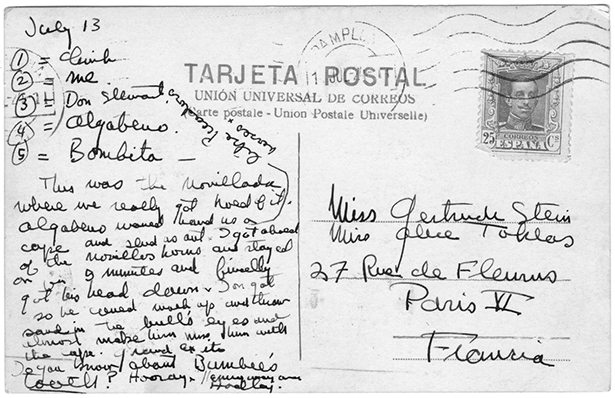 July 13
① = Chink
② = me.
③ = Don Stewart
④ = algabeno.
⑤ = Bombita —
This was the novillada
where we really got hold of it.
Algabeno would hand us a
cape and send us out. I got ahead
of the novillos horns and stayed
on for 9 minutes and finally
got his head down. Don got
so he could walk up and throw
sand in the bull's eyes and
almost make him miss him with
the cape. Grand
Do you know about Bumbie's
tooth? Hooray.
Hemingway and
Hadley.
PAMPL
TARJETA POSTAL
UNIÓN UNIVERSAL DE CORREOS
(Carte postale - Union Postale Universelle)
CORREOS
25 Cs
ESPAÑA
Miss Gertrude Stein
Miss Alice Toklas
27 Rue de Fleurus
Paris VI
Francia